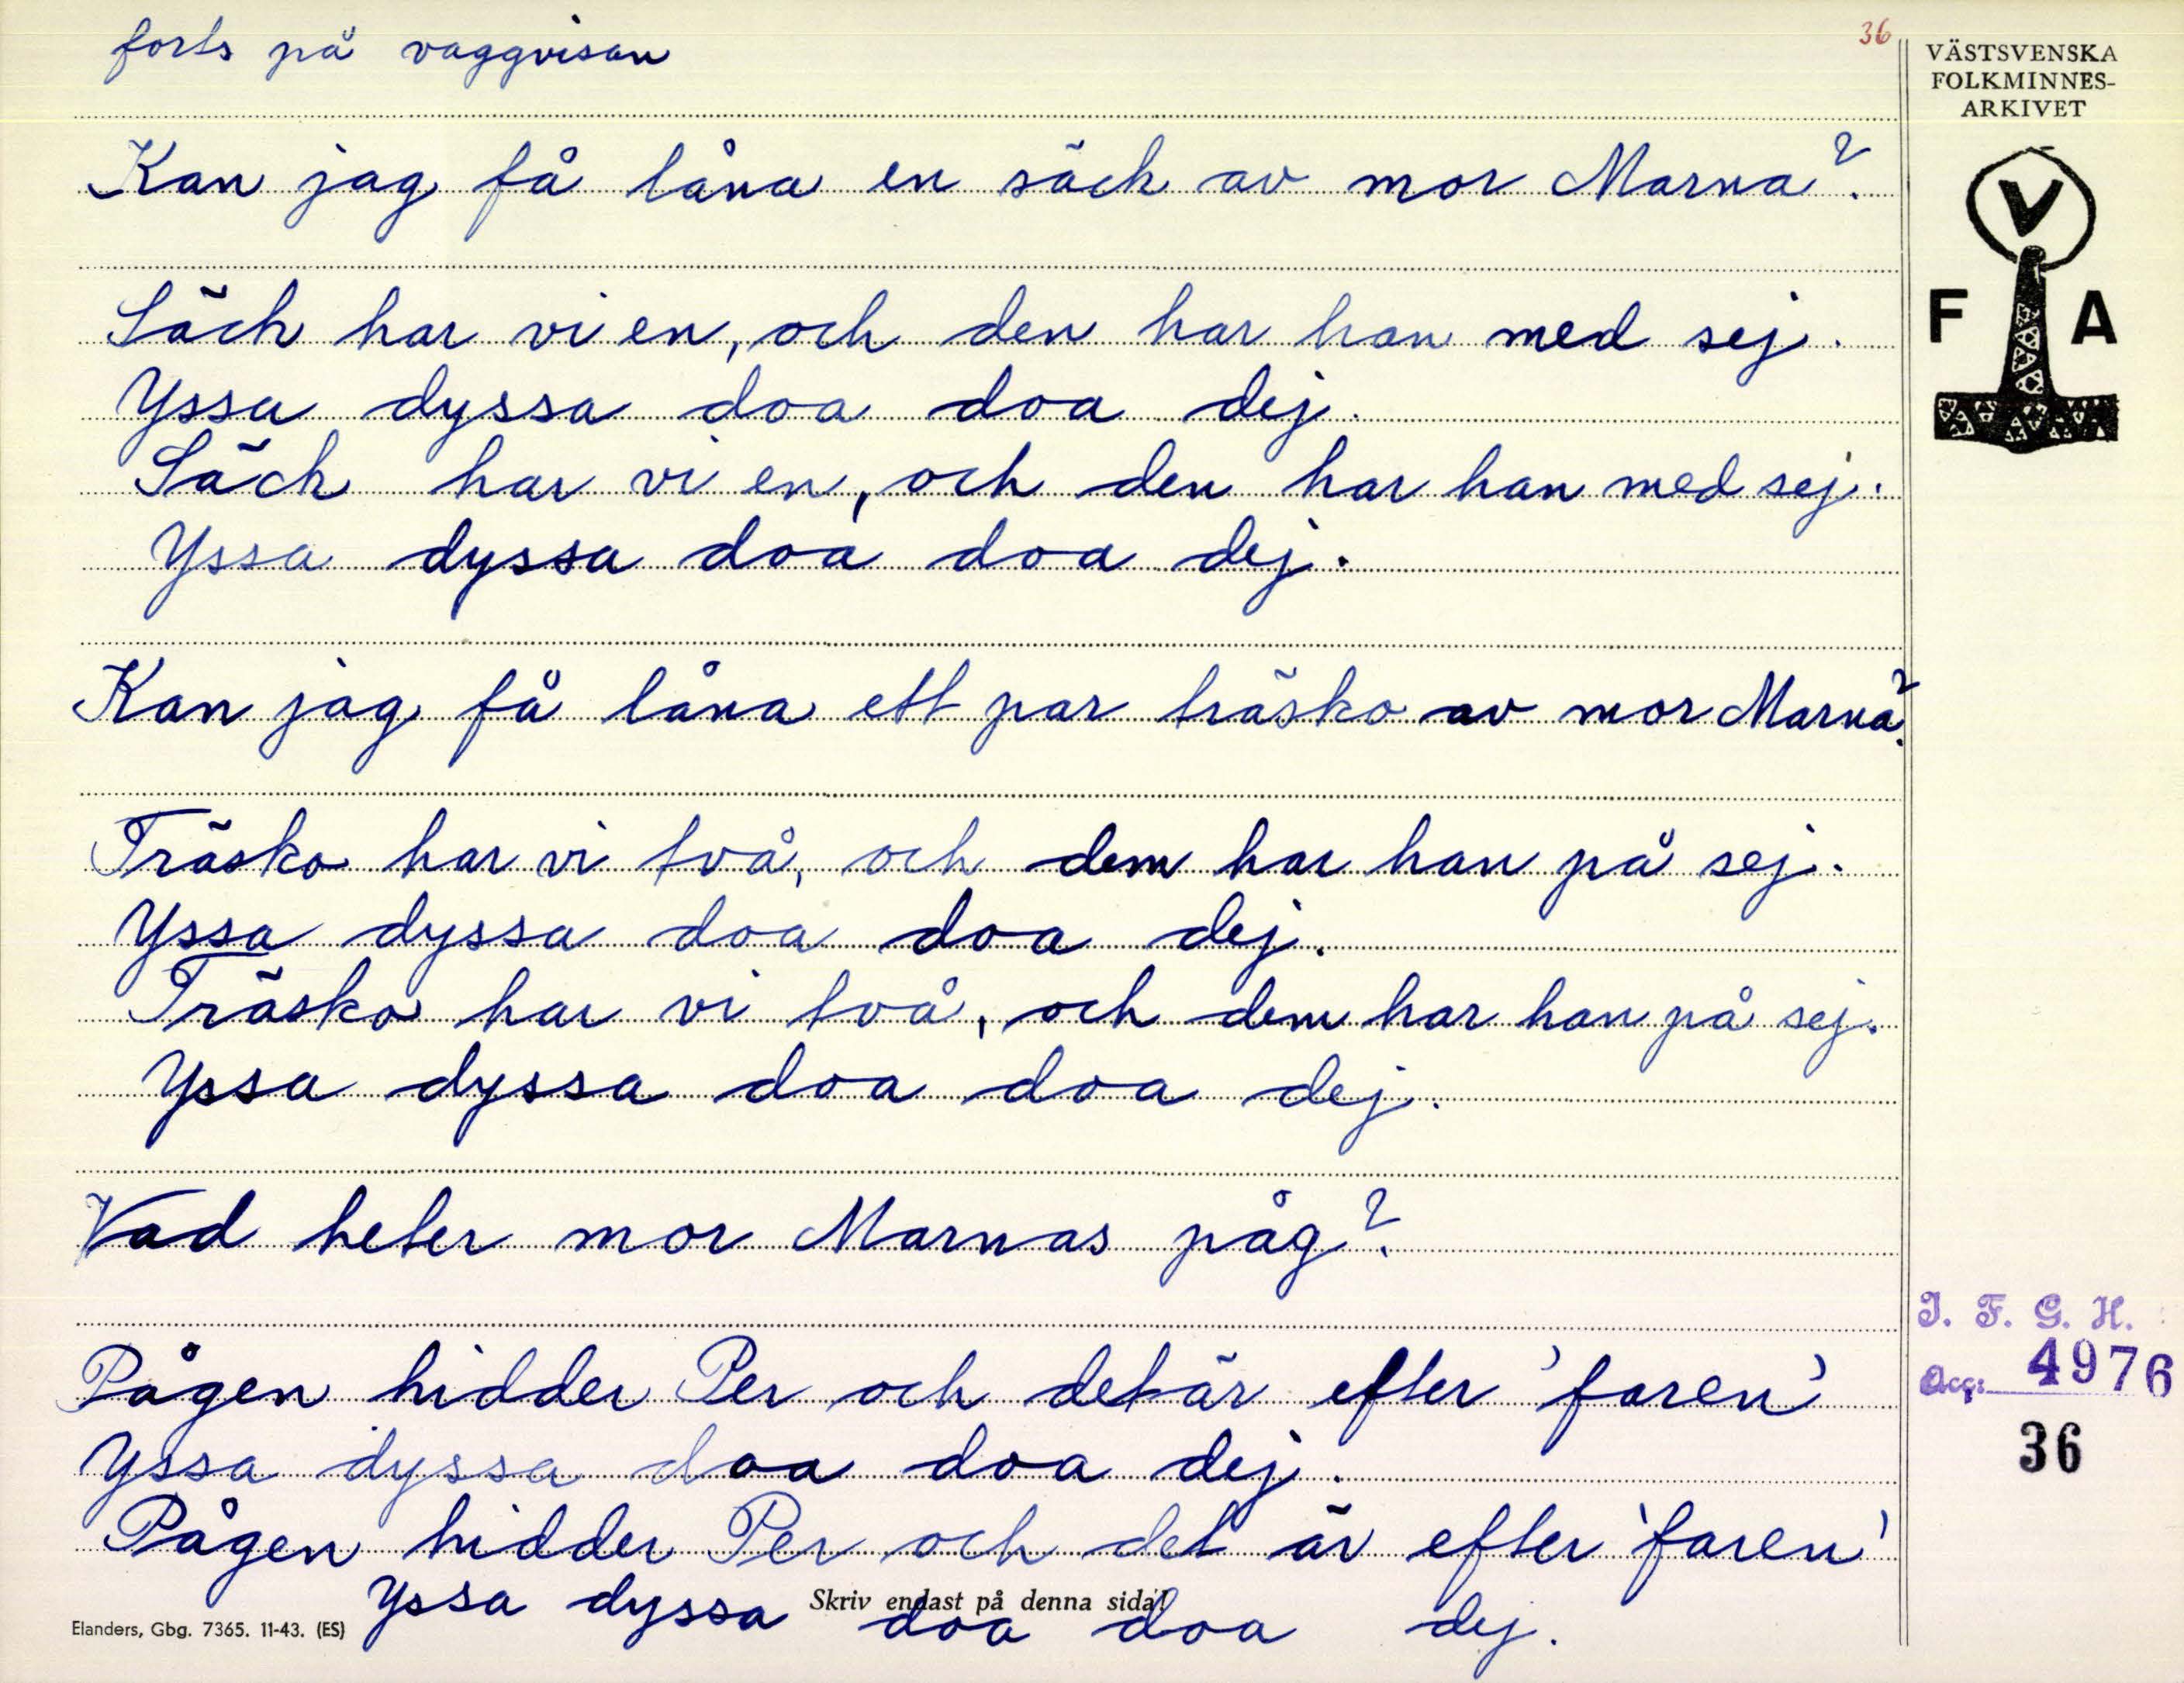 forts på vaggvisan
36
VÄSTSVENSKA
FOLKMINNES-
ARKIVET
V
F A
Kan jag få låna en säck av mor Marna?
Säck har vi en, och den har han med sej.
Yssa dyssa doa doa dej.
Säck har vi en, och den har han med sej.
Yssa dyssa doa doa dej.
Kan jag få låna ett par träsko av mor Marna?
Träsko har vi två, och dem har han på sej.
Yssa dyssa doa doa dej.
Träsko har vi två, och dem har han på sej.
Yssa dyssa doa doa dej.
Vad heter mor Marnas påg?
Pågen hidder Per och det är efter 'faren'
Yssa dyssa doa doa dej.
Pågen hidder Per och det är efter 'faren'
Yssa dyssa doa doa dej.
I. F. G. H.
Acc: 4976
36
Skriv endast på denna sida!
Elanders, Gbg. 7365. 11-43. (ES)